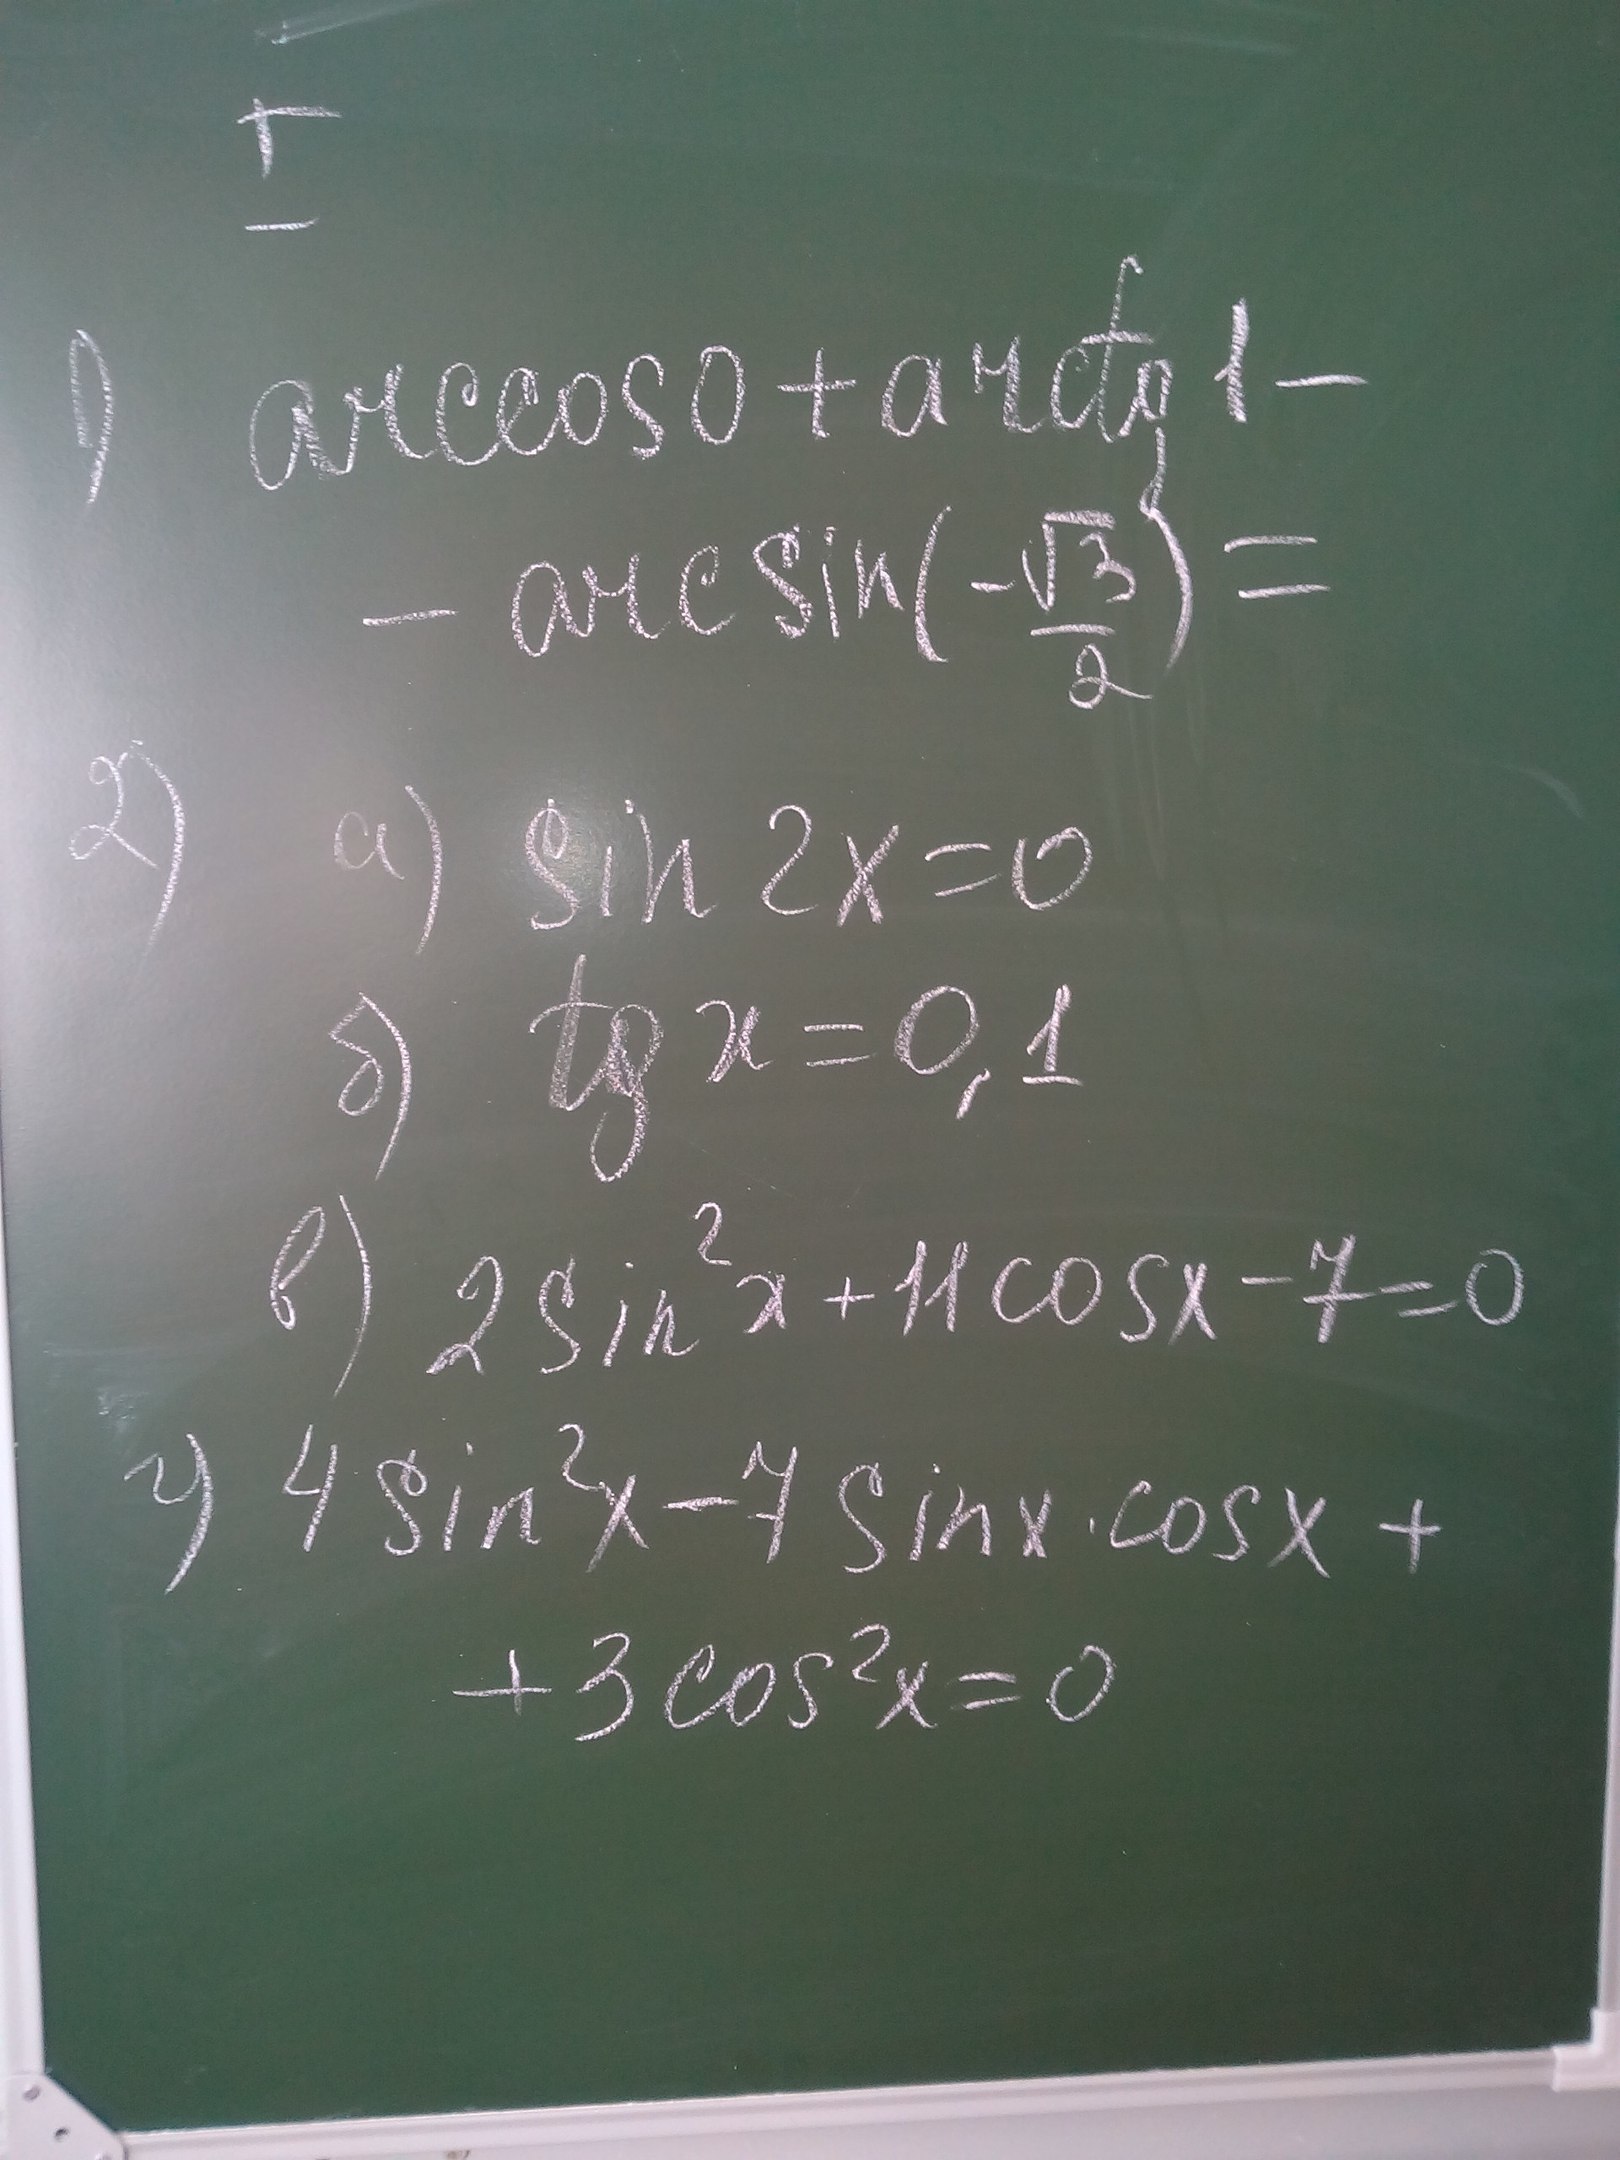 I
1) arccos0 + arctg 1 -
- arcsin(-√3/2) =
2) а) sin 2x = 0
б) tg x = 0,1
в) 2 sin²x + 11 cosx - 7 = 0
г) 4 sin²x - 7 sinx · cosx +
+ 3 cos²x = 0